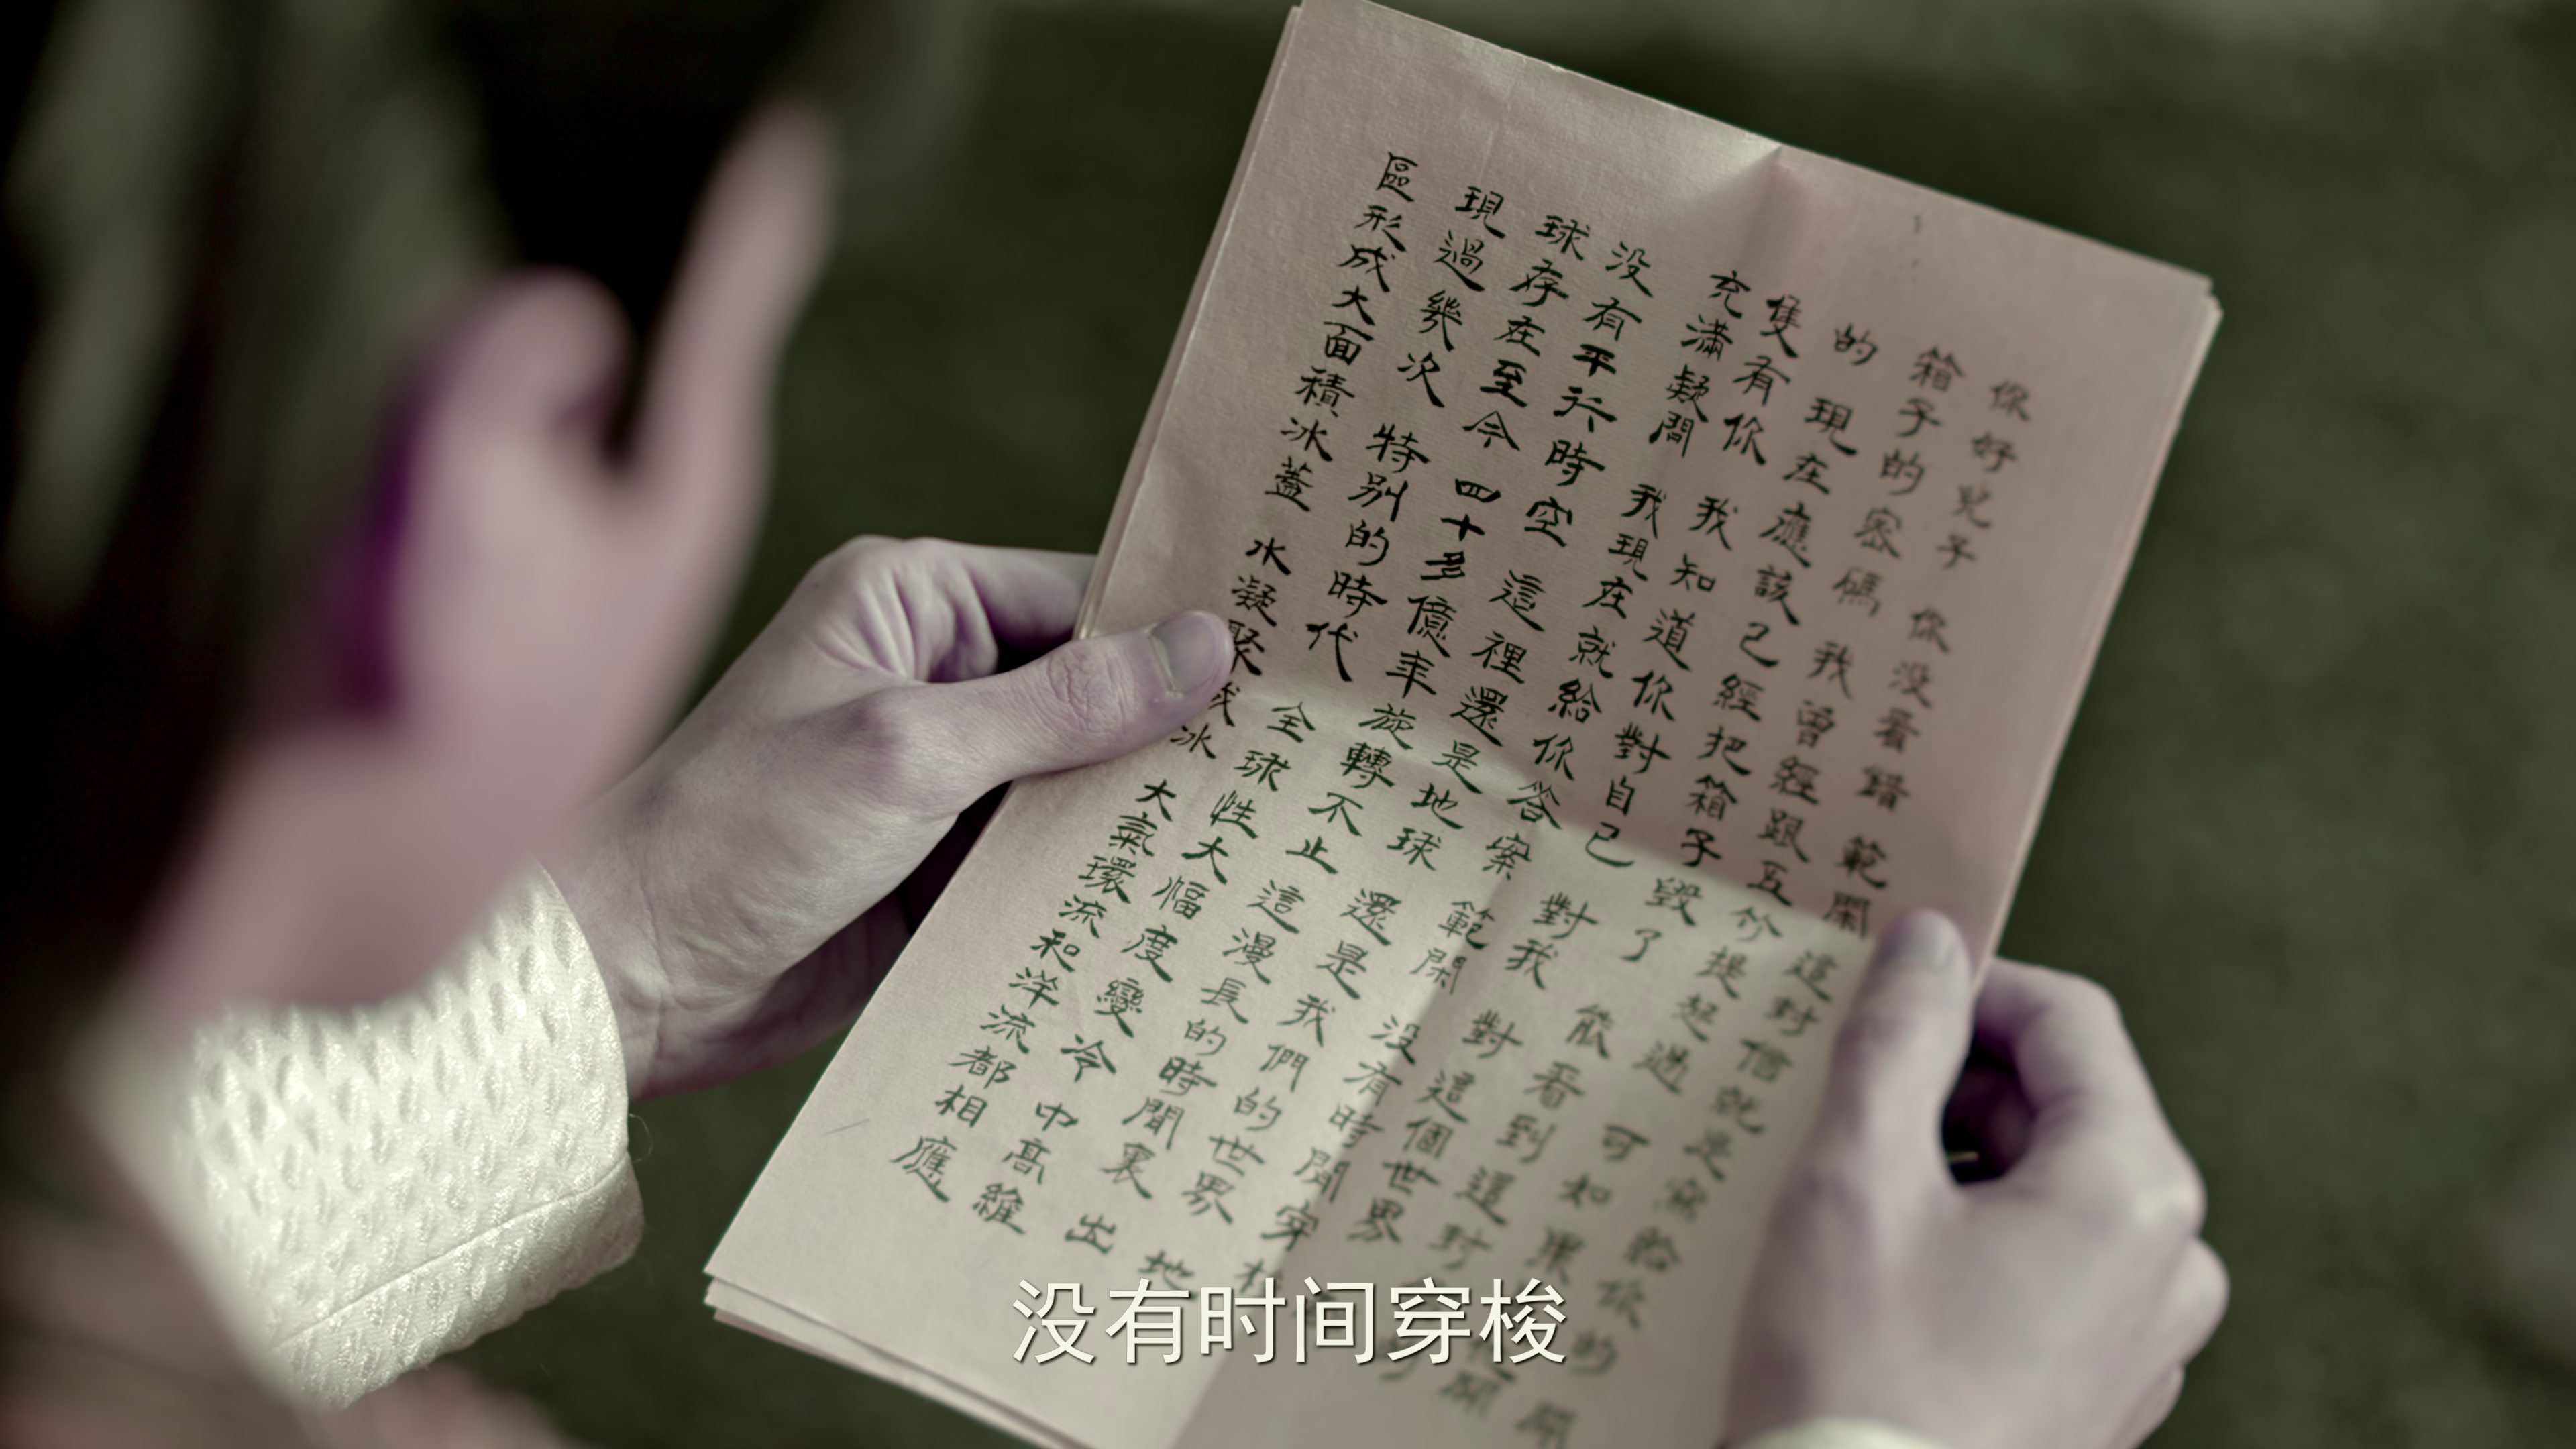 你好兒子 你没看錯 範閑 這封信就是寫給你的
箱子的密碼 我曾經跟五竹提起過 可如果
的 現在應該已經把箱子毀了 能看到這封
隻有你 我知道你對自己 對我 對這個世界
充滿疑問 我現在就給你答案 範閑 没有時間穿
没有平行時空 這裡還是地球 還是我們的世界 地
球存在至今 四十多億年 旋轉不止 這漫長的時間裏 出
現過幾次 特别的時代 全球性大幅度變冷 中高維
區形成大面積冰蓋 水凝聚成冰 大氣環流和洋流都相應
没有时间穿梭